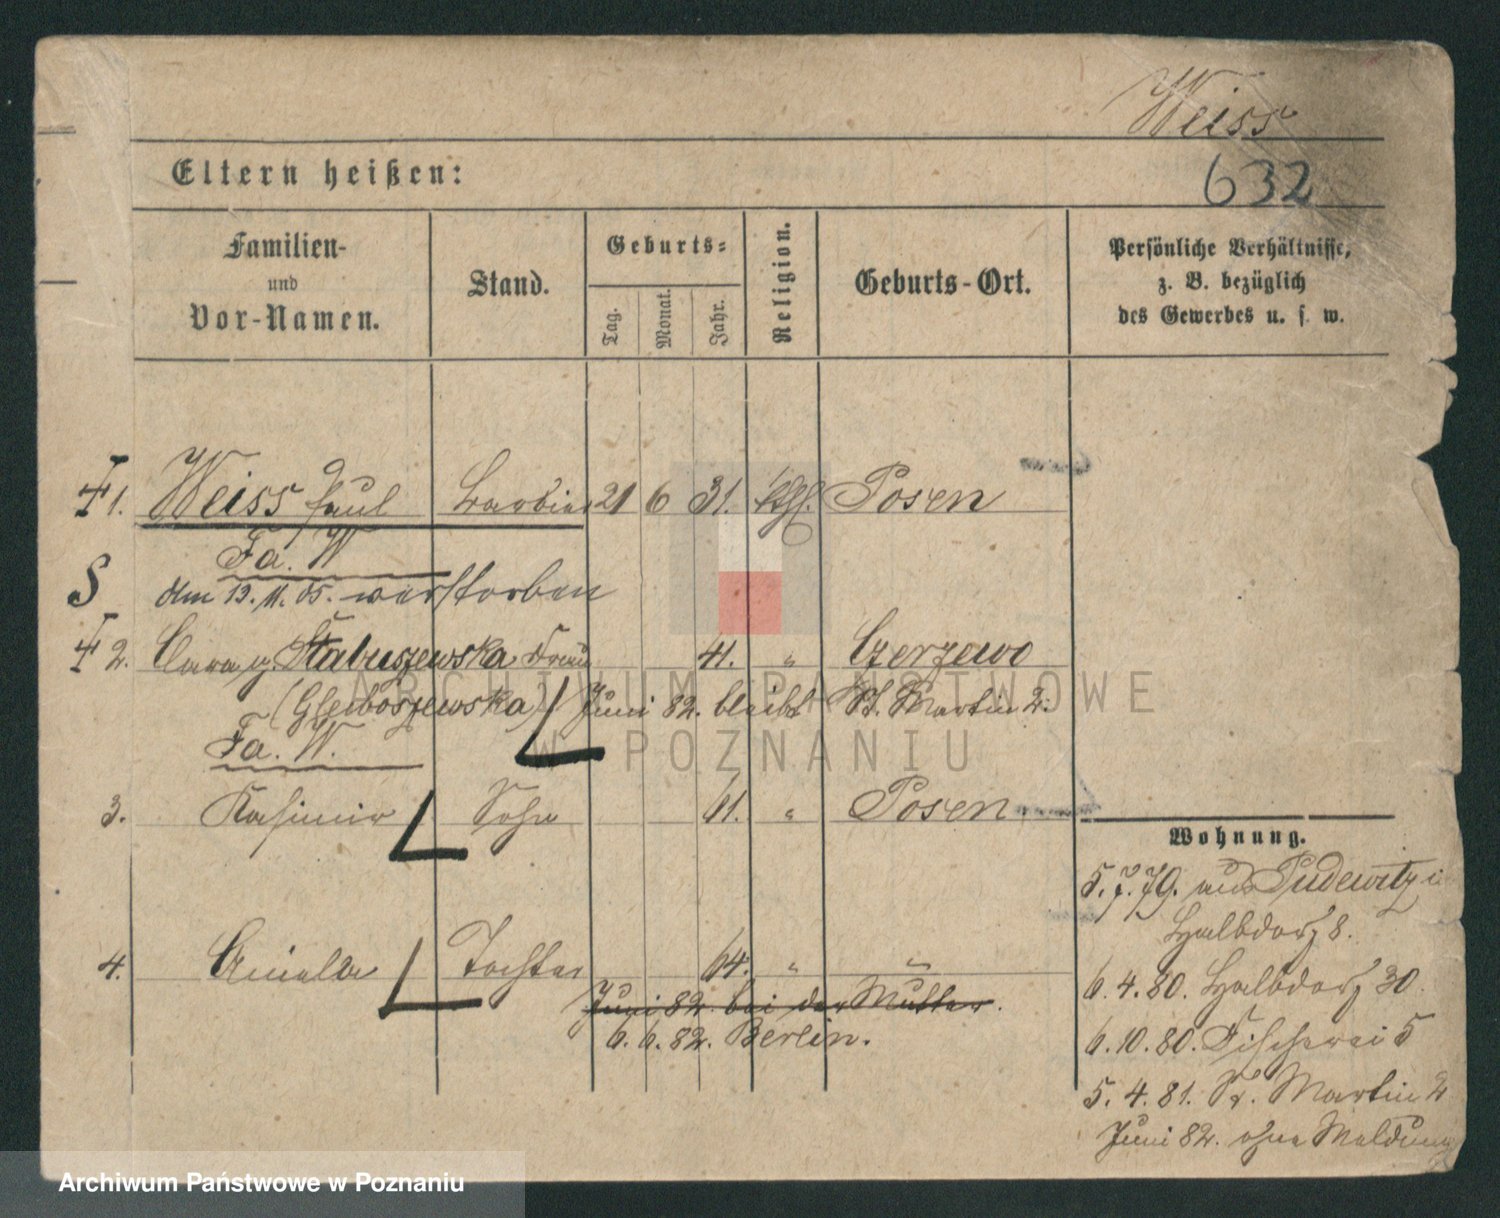 Weiss
632
Eltern heißen:
Familien- und Vor-Namen.
Stand.
Geburts-
Tag.
Monat.
Jahr.
Religion.
Geburts-Ort.
Persönliche Verhältnisse, z. B. bezüglich des Gewerbes u. s. w.
1. Weiss Paul Barbier 21 6 31. kthl. Posen
Fa. W
S
Am 13. 11. 05. verstorben
2. Stabuszewska Frau 41. " Czerzewo
(Gleboszewska) Juni 82. bleibt St. Martin 2.
Fa. W.
3. Kasimir Sohn 61. " Posen
4. Aniela Tochter 64. " "
Juni 82 bei der Mutter.
6. 6. 82. Berlin.
Wohnung.
5. 7. 79. aus Pudewitz
Halbdorf 8.
6. 4. 80. Halbdorf 30.
6. 10. 80. Fischerei 5
5. 4. 81. St. Martin 2
Juni 82. ohne Meldung
ARCHIWUM PAŃSTWOWE
W POZNANIU
Archiwum Państwowe w Poznaniu